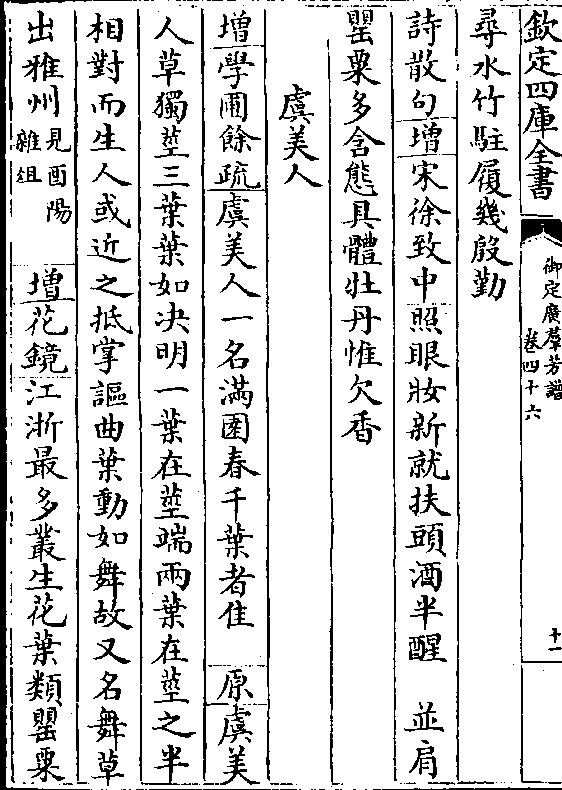 欽定四庫全書
御定廣羣芳譜
卷四十六
十一
尋水竹駐履幾殷勤
詩散句增宋徐致中照眼妝新就扶頭酒半醒　並肩
罌粟多含態具體牡丹惟欠香
虞美人
增學圃餘疏虞美人一名滿園春千葉者佳　原虞美
人草獨莖三葉葉如決明一葉在莖端兩葉在莖之半
相對而生人或近之抵掌謳曲葉動如舞故又名舞草
出雅州見酉陽雜俎　增花鏡江浙最多叢生花葉類罌粟